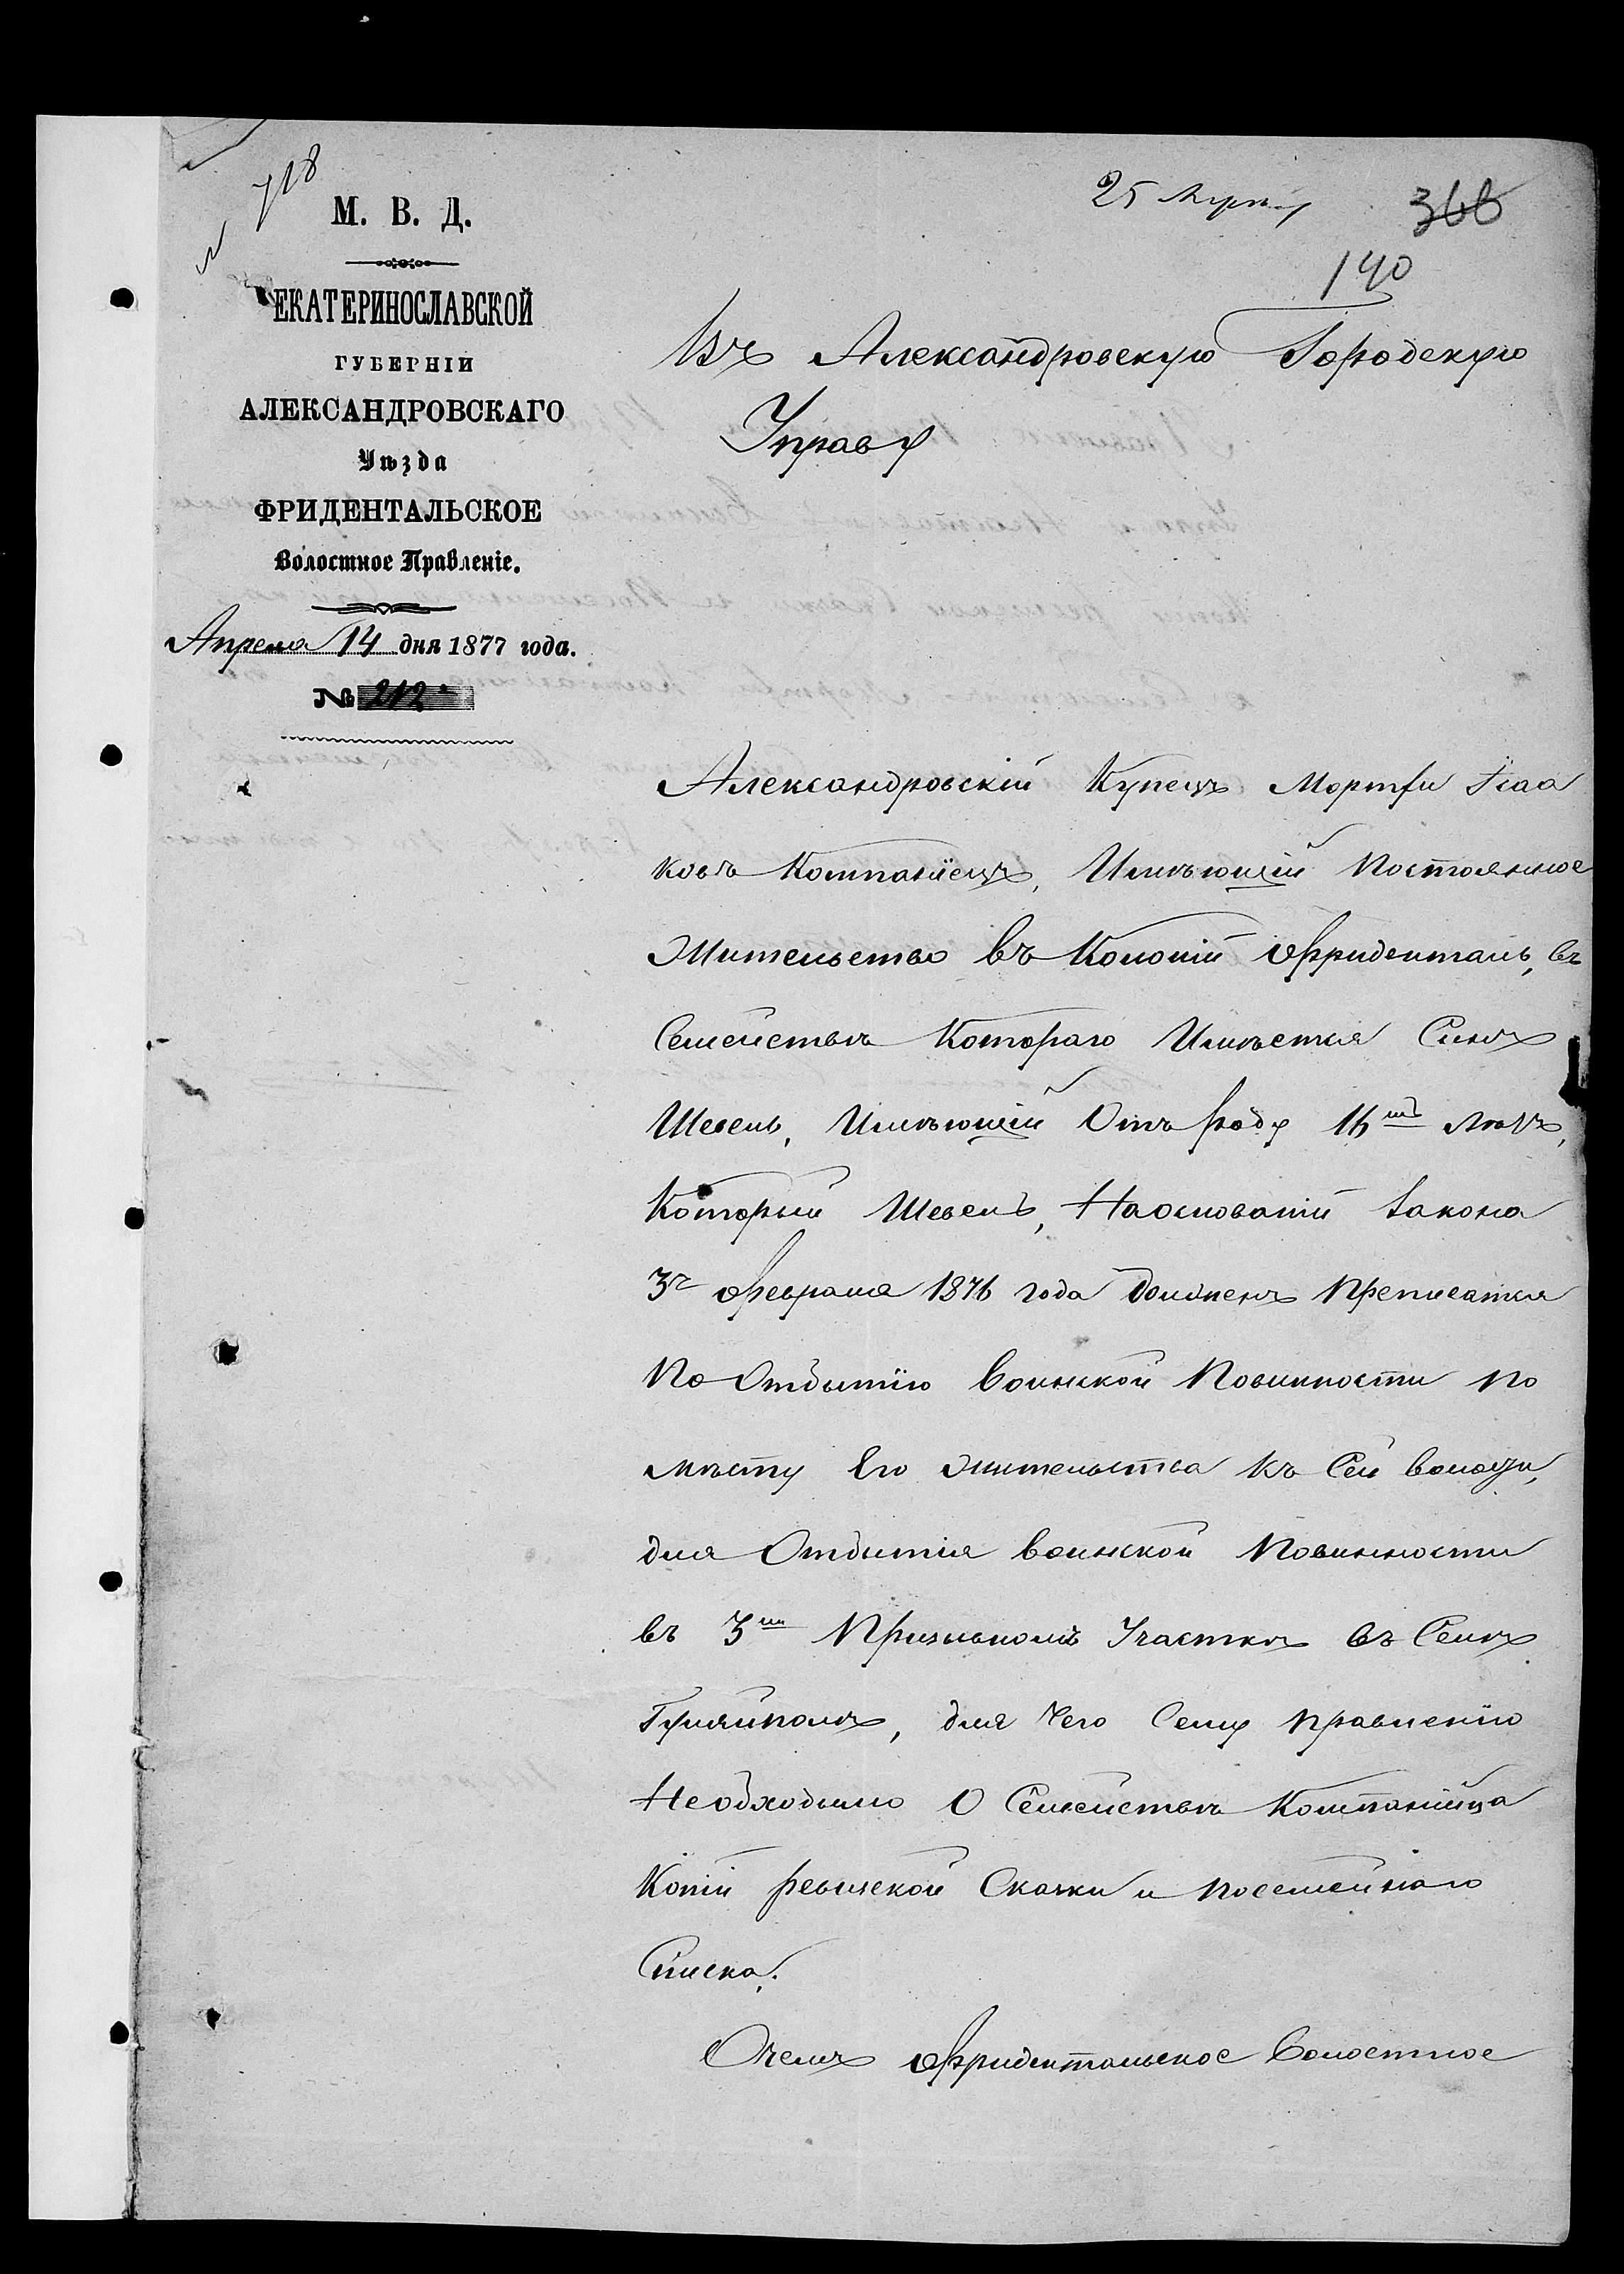 № 718
25 Апрѣл
366
140
М. В. Д.
ЕКАТЕРИНОСЛАВСКОЙ
ГУБЕРНІИ
АЛЕКСАНДРОВСКАГО
Уѣзда
ФРИДЕНТАЛЬСКОЕ
Волостное Правленіе.
Апреля 14 дня 1877 года.
№ 212
Въ Александровскую Городскую
Управу
Александровскій Купецъ Мортхи Исаа
ковъ Компаніецъ, Имѣющій Постоянное
Жительство въ Колоніи Фриденталь, въ
Семействѣ Котораго Имѣется Синъ
Шевель, Имѣющій Отъ роду 16ть лѣтъ,
Который Шевель, Наоснованіи Закона
3го Февраля 1876 года должен Преписатся
По Отбытію воинской Повинности по
мѣсту Его жительства къ Сей волости,
для Отбытія воинской Повинности
въ 3мъ Призывномъ Участкѣ въ Селѣ
Гуляйполѣ, для Чего Сему правленію
Необходимо О Семействѣ Компанійца
Копіи ревиской Скаски и посемейнаго
Списка.
Очемъ Фридентальское Волостное